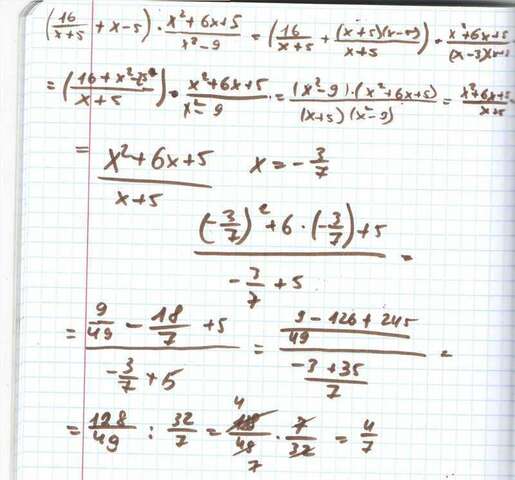 (16/(x+5) + x-5) · (x²+6x+5)/(x²-9) = (16/(x+5) + (x+5)(x-5)/(x+5)) · (x²+6x+5)/(x-3)(x+3
= ((16+x²-25)/(x+5)) · (x²+6x+5)/(x²-9) = (x²-9)·(x²+6x+5)/(x+5)(x²-9) = (x²+6x+5)/(x+5)
= (x²+6x+5)/(x+5) x = -3/7
((-3/7)²+6·(-3/7)+5)/(-3/7+5) =
= (9/49 - 18/7 +5)/(-3/7+5) = ((9-126+245)/49)/((-3+35)/7) =
= 128/49 : 32/7 = 4 128/49 7 · 7/32 = 4/7